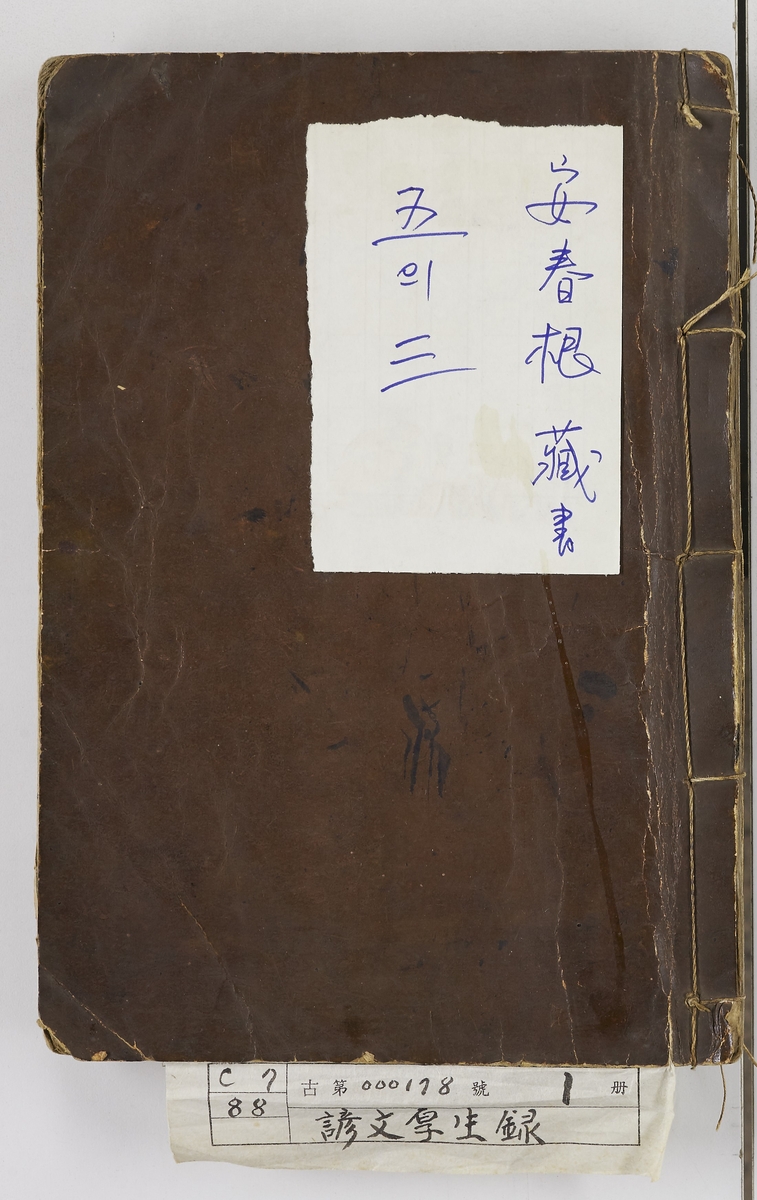 安春根 藏書
五의 三
C 7
88
古 第 000178 號 1 册
諺文厚生録